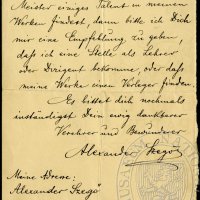 Meister einiges Talent in meinen
Werken findest, dann bitte ich Dich
mir eine Empfehlung, zu geben
daß ich eine Stelle als Lehrer
oder Dirigent bekomme, oder daß
meine Werke einen Verleger finden.
Es bittet dich nochmals
inständigst Dein ewig dankbarer
Verehrer und Bewunderer
Alexander Szegö
Meine Adresse:
Alexander Szegö